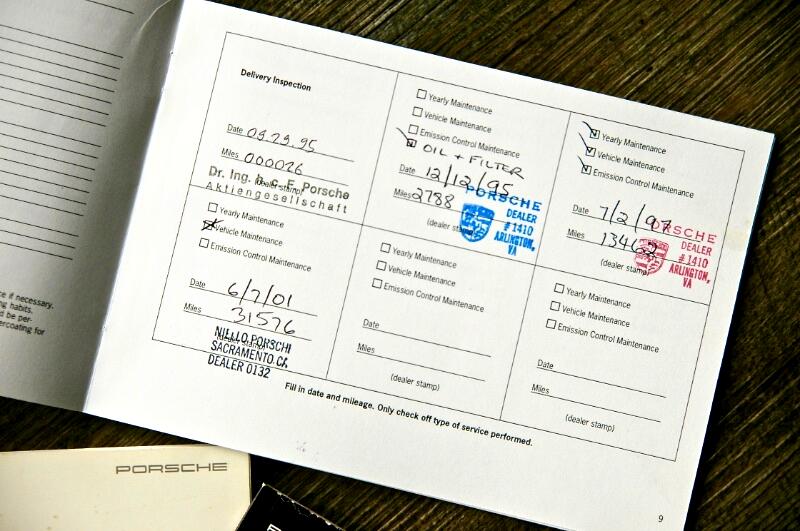 Delivery Inspection
Date 09.29.95
Miles 000026
Dr. Ing. h.c. F. Porsche
Aktiengesellschaft
(dealer stamp)
Yearly Maintenance
Vehicle Maintenance
Emission Control Maintenance
OIL + FILTER
Date 12/12/95
Miles 2788
(dealer stamp)
PORSCHE
DEALER
#1410
ARLINGTON,
VA
Yearly Maintenance
Vehicle Maintenance
Emission Control Maintenance
Date 7/2/97
Miles 13462
(dealer stamp)
PORSCHE
DEALER
#1410
ARLINGTON,
VA
Yearly Maintenance
Vehicle Maintenance
Emission Control Maintenance
Date 6/7/01
Miles 31576
(dealer stamp)
NIELLO PORSCHE
SACRAMENTO CA
DEALER 0132
Yearly Maintenance
Vehicle Maintenance
Emission Control Maintenance
Date
Miles
(dealer stamp)
Yearly Maintenance
Vehicle Maintenance
Emission Control Maintenance
Date
Miles
(dealer stamp)
Fill in date and mileage. Only check off type of service performed.
9
e if necessary.
ng habits.
d be per-
ercoating for
PORSCHE